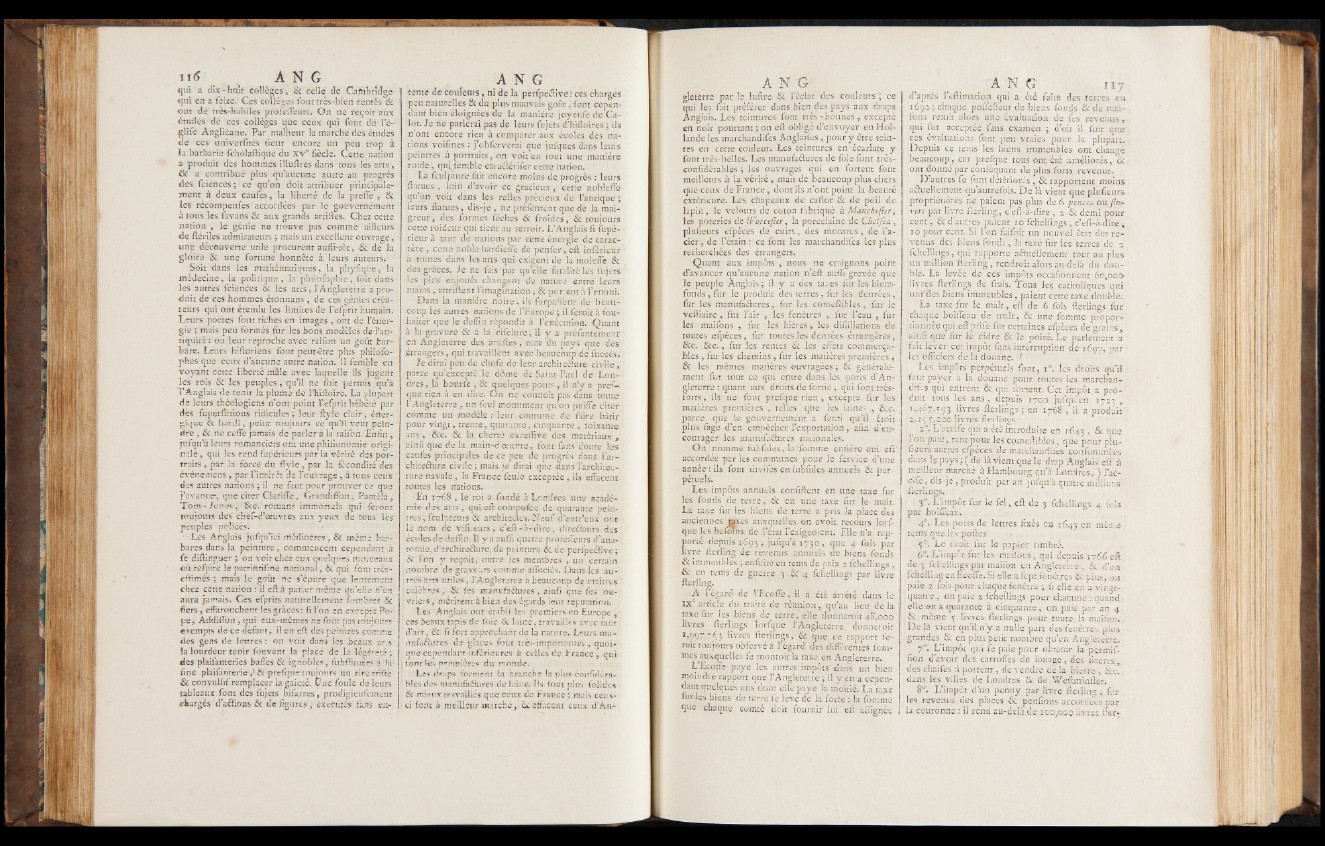 116 A N G
qui a dix-huit collèges, & celle de Cambridge
qui en a ſeize. Ces collèges ſont très-bien rentés &
ont de très-habiles profeſſeurs. On ne reçoit aux
études de ces collèges que ceux qui ſont de l'é-
gliſe Anglicane. Par malheur la marche des études
de ces univerſités tient encore un peu trop à
la barbarie ſcholaſtique du xvᵉ ſiècle. Cette nation
a produit des hommes illuſtres dans tous les arts,
& a contribué plus qu'aucune autre au progrès
des ſciences; ce qu'on doit attribuer principale-
ment à deux cauſes, la liberté de la preſſe, &
les récompenſes accordées par le gouvernement
à tous les ſavans & aux grands artiſtes. Chez cette
nation, le génie ne trouve pas comme ailleurs
de ſtériles admirateurs; mais un excellent ouvrage,
une découverte utile procurent auſſi-tôt, & de la
gloire & une fortune honnête à leurs auteurs.
Soit dans les mathématiques, la phyſique, la
médecine, la politique, la philoſophie, ſoit dans
les autres ſciences & les arts, l'Angleterre a pro-
duit de ces hommes étonnans, de ces génies créa-
teurs qui ont étendu les limites de l'eſprit humain.
Leurs poètes ſont riches en images, ont de l'éner-
gie; mais peu formés ſur les bons modèles de l'an-
tiquité: on leur reproche avec raiſon un goût bar-
bare. Leurs hiſtoriens ſont peut-être plus philoſo-
phes que ceux d'aucune autre nation. Il ſemble en
voyant cette liberté mâle avec laquelle ils jugent
les rois & les peuples, qu'il ne ſoit permis qu'à
l'Anglais de tenir la plume de l'hiſtoire. La plupart
de leurs théologiens n'ont point l'eſprit hébété par
des ſuperſtitions ridicules; leur ſtyle clair, éner-
gique & hardi, peint toujours ce qu'il veut pein-
dre, & ne ceſſe jamais de parler à la raiſon. Enfin,
juſqu'à leurs romanciers ont une phiſionomie origi-
nale, qui les rend ſupérieurs par la vérité des por-
traits, par la force du ſtyle, par la fécondité des
événemens, par l'intérêt de l'ouvrage, à tous ceux
des autres nations; il ne faut pour prouver ce que
j'avance, que citer Clariſſe, Grandiſſon, Paméla,
Tom-Jones, &c. romans immortels qui ſeront
toujours des chef-d'œuvres aux yeux de tous les
peuples policés.
Les Anglais juſqu'ici médiocres, & même bar-
bares dans la peinture, commencent cependant à
ſe diſtinguer; on voit chez eux quelques morceaux
où reſpire le patriotiſme national, & qui ſont très-
eſtimés; mais le goût ne s'épure que lentement
chez cette nation: il eſt à parier même qu'elle n'en
aura jamais. Ces eſprits naturellement ſombres &
fiers, effarouchent les grâces: ſi l'on en excepte Po-
pe, Addiſſon, qui eux-mêmes ne ſont pas toujours
exempts de ce défaut, il en eſt des peintres comme
des gens de lettres: on voit dans les beaux arts
la lourdeur tenir ſouvent la place de la légéreté;
des plaiſanteries baſſes & ignobles, ſubſtituées à la
fine plaiſanterie, & preſque toujours un rire triſte
& convulſif remplacer la gaieté. Une foule de leurs
tableaux ſont des ſujets biſarres, prodigieuſement
chargés d'actions & de figures, exécutés ſans en-
A N G
tente de couleurs, ni de la perſpective: ces charges
peu naturelles & du plus mauvais goût, ſont cepen-
dant bien éloignées de la manière joyeuſe de Ca-
lot. Je ne parlerai pas de leurs ſujets d'hiſtoires; ils
n'ont encore rien à comparer aux écoles des na-
tions voiſines: j'obſerverai que juſques dans leurs
peintres à portraits, on voit en tout une manière
roide, qui ſemble caractériſer cette nation.
La ſculpture fait encore moins de progrès: leurs
ſtatues, loin d'avoir ce gracieux, cette nobleſſe
qu'on voit dans les reſtes précieux de l'antique;
leurs ſtatues, dis-je, ne préſentent que de la mai-
greur, des formes ſèches & froides, & toujours
cette roideur qui tient au terroir. L'Anglais ſi ſupé-
rieur à tant de nations par cette énergie de carac-
tère, cette noble hardieſſe de penſer, eſt inférieur
à toutes dans les arts qui exigent de la moleſſe &
des grâces. Je ne ſais par qu'elle fatalité les ſujets
les plus enjoués changent de nature entre leurs
mains, attriſtent l'imagination, & portent à l'ennui.
Dans la manière noire, ils ſurpaſſent de beau-
coup les autres nations de l'Europe; il ſeroit à ſou-
haiter que le deſſin répondît à l'exécution. Quant
à la gravure & à la ciſelure, il y a préſentement
en Angleterre des artiſtes, tant du pays que des
étrangers, qui travaillent avec beaucoup de ſuccès.
Je dirai peu de choſe de leur architecture civile,
parce qu'excepté le dôme de Saint-Paul de Lon-
dres, la bourſe, & quelques ponts, il n'y a preſ-
que rien à en dire. On ne connoît pas dans toute
l'Angleterre, un ſeul monument qu'on puiſſe citer
comme un modèle: leur coutume de faire bâtir
pour vingt, trente, quarante, cinquante, ſoixante
ans, &c. & la cherté exceſſive des matériaux,
ainſi que de la main-d'œuvre, ſont ſans doute les
cauſes principales de ce peu de progrès dans l'ar-
chitecture civile; mais je dirai que dans l'architec-
ture navale, la France ſeule exceptée, ils effacent
toutes les nations.
En 1768, le roi a fondé à Londres une acadé-
mie des arts, qui eſt compoſée de quarante pein-
tres, ſculpteurs & architectes. Neuf d'entr'eux ont
le nom de viſiteurs, c'eſt-à-dire, directeurs des
écoles de deſſin. Il y a auſſi quatre profeſſeurs d'ana-
tomie, d'architecture, de peinture & de perſpective;
& l'on y reçoit, outre les membres, un certain
nombre de graveurs comme aſſociés. Dans les au-
tres arts utiles, l'Angleterre a beaucoup de maîtres
célèbres, & ſes manufactures, ainſi que ſes ou-
vriers, méritent à bien des égards leur réputation.
Les Anglais ont établi les premiers en Europe,
ces beaux tapis de ſoie & laine, travaillés avec tant
d'art, & ſi fort approchant de la nature. Leurs ma-
nufactures de glaces ſont très-importantes, quoi-
que cependant inférieures à celles de France, qui
ſont les premières du monde.
Les draps forment la branche la plus conſidéra-
bles des manufactures de laine. Ils ſont plus ſolides
& mieux travaillés que ceux de France; mais ceux-
ci ſont à meilleur marché, & effacent ceux d'An-
A N G
gleterre par le luſtre & l'éclat des couleurs; ce
qui les fait préférer dans bien des pays aux draps
Anglais. Les teintures ſont très-bonnes, excepté
en noir pourtant; on eſt obligé d'envoyer en Hol-
lande les marchandiſes Anglaiſes, pour y être tein-
tes en cette couleur. Les teintures en écarlate y
ſont très-belles. Les manufactures de ſoie ſont très-
conſidérables; les ouvrages qui en ſortent ſont
meilleurs à la vérité, mais de beaucoup plus chers
que ceux de France, dont ils n'ont point la beauté
extérieure. Les chapeaux de caſtor & de poil de
lapin, le velours de coton fabriqué à Mancheſter,
les poteries de Worceſter, la porcelaine de Chelſea,
pluſieurs eſpèces de cuirs, des montres, de l'a-
cier, de l'étain: ce ſont les marchandiſes les plus
recherchées des étrangers.
Quant aux impôts, nous ne craignons point
d'avancer qu'aucune nation n'eſt auſſi grevée que
le peuple Anglais; il y a des taxes ſur les biens-
fonds, ſur le produit des terres, ſur les denrées,
ſur les manufactures, ſur les comeſtibles, ſur le
veſtiaire, ſur l'air, les fenêtres, ſur l'eau, ſur
les maiſons, ſur les bières, les diſtillations de
toutes eſpèces, ſur toutes les denrées étrangères,
&c. &c., ſur les rentes & les effets commerça-
bles, ſur les chemins, ſur les matières premières,
& les mêmes matières ouvragées; & générale-
ment ſur tout ce qui entre dans les ports d'An-
gleterre: quant aux droits de ſortie, qui ſont très-
forts, ils ne ſont preſque rien, excepté ſur les
matières premières, telles que les laines, &c.
parce que le gouvernement a ſenti qu'il étoit
plus ſage d'en empêcher l'exportation, afin d'en-
courager les manufactures nationales.
On nomme ſubſides, la ſomme entière qui eſt
accordée par les communes pour le ſervice d'une
année: ils ſont diviſés en ſubſides annuels & per-
pétuels.
Les impôts annuels conſiſtent en une taxe ſur
les fonds de terre, & en une taxe ſur le malt.
La taxe ſur les biens de terre a pris la place des
anciennes taxes auxquelles on avoit recours lorſ-
que les beſoins de l'état l'exigeoient. Elle n'a rap-
porté depuis 1693, juſqu'à 1730, que 4 ſols par
livre ſterling de revenus annuels de biens fonds
& immeubles; enſuite en tems de paix 2 ſchellings,
& en tems de guerre 3 & 4 ſchellings par livre
ſterling.
A l'égard de l'Ecoſſe, il a été arrêté dans le
ixᵉ article du traité de réunion, qu'au lieu de la
taxe ſur les biens de terre, elle donneroit 48,000
livres ſterlings lorſque l'Angleterre donneroit
1,997,763 livres ſterlings, & que ce rapport ſe-
roit toujours obſervé à l'égard des différentes ſom-
mes auxquelles ſe montoit la taxe en Angleterre.
L'Ecoſſe paye les autres impôts dans un bien
moindre rapport que l'Angleterre; il y en a cepen-
dant quelques-uns dont elle paye la moitié. La taxe
ſur les biens de terre ſe lève de la ſorte: la ſomme
que chaque comté doit fournir lui eſt aſſignée
A N G 117
d'après l'eſtimation qui a été faite des terres en
1692; chaque poſſeſſeur de biens fonds & de mai-
ſons remit alors une évaluation de ſes revenus,
qui fut acceptée ſans examen; d'où il ſuit que
ces évaluations ſont peu vraies pour la plupart.
Depuis ce tems les biens immeubles ont changé
beaucoup, car preſque tous ont été améliorés, &
ont donné par conſéquent de plus forts revenus.
D'autres ſe ſont détériorés, & rapportent moins
actuellement qu'autrefois. De là vient que pluſieurs
propriétaires ne paient pas plus de 6 pences ou ſtu-
vers par livre ſterling, c'eſt-à-dire, 2 & demi pour
cent, & d'autres paient 10 ſchellings, c'eſt-à-dire,
10 pour cent. Si l'on faiſoit un nouvel état des re-
venus des biens fonds, la taxe ſur les terres de 2
ſchellings, qui rapporte actuellement tout au plus
un million ſterling, rendroit alors au-delà du dou-
ble. La levée de ces impôts occaſionnent 60,000
livres ſterlings de frais. Tous les catholiques qui
ont des biens immeubles, paient cette taxe double.
La taxe ſur le malt, eſt de 6 ſols ſterlings ſur
chaque boiſſeau de malt, & une ſomme propor-
tionnée qui eſt priſe ſur certaines eſpèces de grains,
ainſi que ſur le cidre & le poiré. Le parlement a
fait lever cet impôt ſans interruption de 1697, par
les officiers de la douane.
Les impôts perpétuels ſont, 1°. les droits qu'il
faut payer à la douane pour toutes les marchan-
diſes qui entrent & qui ſortent. Cet impôt a pro-
duit tous les ans, depuis 1700 juſqu'en 1722,
1,467,193 livres ſterlings; en 1768, il a produit
livres ſterlings.
2°. L'accife qui a été introduite en 1643, & que
l'on paie, tant pour les comeſtibles, que pour plu-
ſieurs autres eſpèces de marchandiſes conſommées
dans le pays; (de là vient que le drap Anglais eſt à
meilleur marché à Hambourg qu'à Londres,) l'ac-
ciſe, dis-je, produit par an juſqu'à quatre millions
ſterlings.
3°. L'impôt ſur le ſel, eſt de 3 ſchellings 4 ſols
par boiſſeau.
4°. Les ports de lettres fixés en 1643 en même
tems que les poſtes
5°. Le droit ſur le papier timbré.
6°. L'impôt ſur les maiſons, qui depuis 1766 eſt
de 3 ſchellings par maiſon en Angleterre, & d'un
ſchelling en Ecoſſe. Si elle a ſept fenêtres & plus, on
paie 2 ſols pour chaque fenêtre; ſi elle en a vingt-
quatre, on paie 2 ſchellings pour chacune: quand
elle en a quarante à cinquante, on paie par an 4
& même 5 livres ſterlings pour toute la maiſon.
De là vient qu'il n'y a nulle part des fenêtres plus
grandes & en plus petit nombre qu'en Angleterre.
7°. L'impôt qui ſe paie pour obtenir la permiſ-
ſion d'avoir des carroſſes de louage, des fiacres,
des chaiſes à porteur, de vendre de la bierre, &c.
dans les villes de Londres & de Weſtminſter.
8°. L'impôt d'un penny par livre ſterling, ſur
les revenus des places & penſions accordées par
la couronne: il rend au-delà de 100,000 livres ſter-